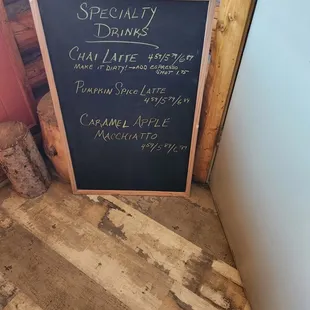 Specialty
Drinks
Chai Latte
Make it dirty! → add espresso
shot
Pumpkin Spice Latte
Caramel Apple
Macchiato